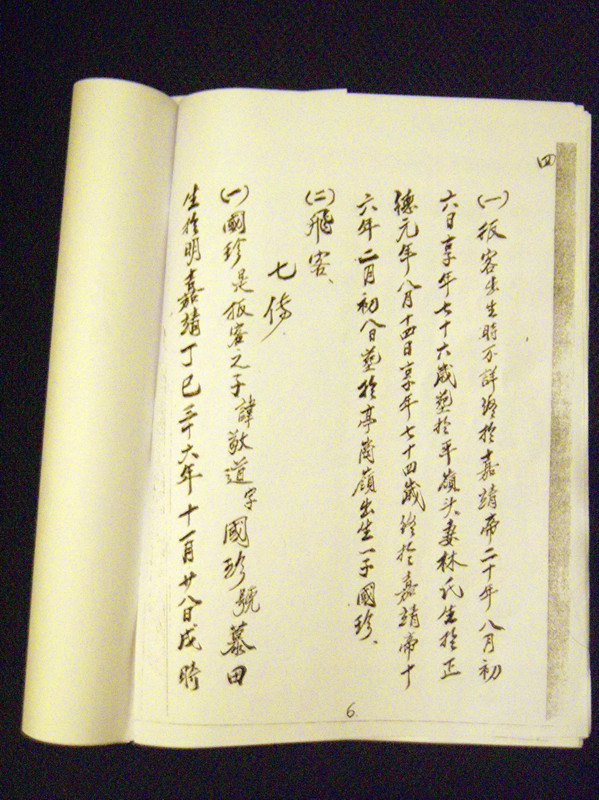 四
(一)振客出生時不詳終於嘉靖帝二十年八月初
六日享年七十六歲塟扵平嶺头妻林氏生扵正
德元年八月十四日享年七十四歲終扵嘉靖帝十
六年二月初八日塟扵亭崗嶺出生一子國珍、
(二)飛客、
七传
(一)國珍是振客之子諱敬道字國珍號慕田
生扵明嘉靖丁巳三十六年十一月廿八日戍時
6